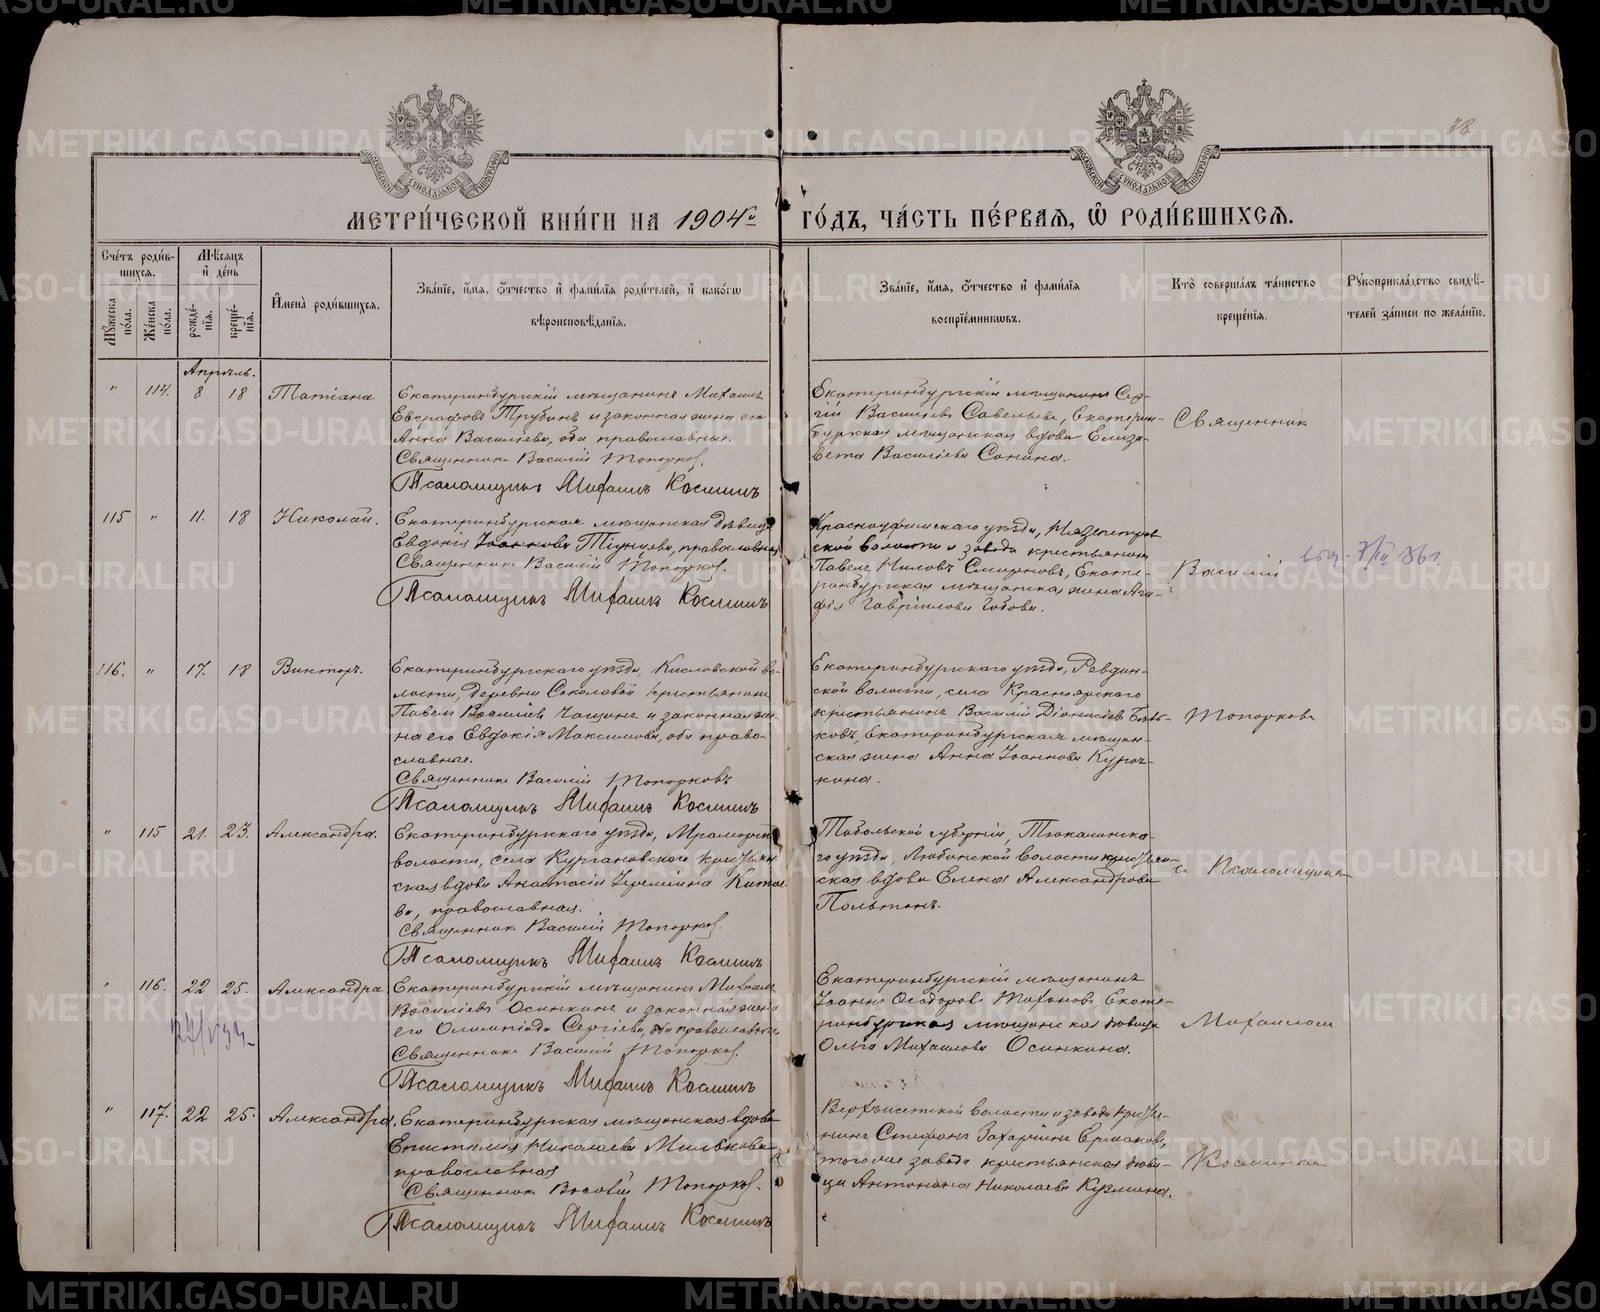 МЕТРИ́ЧЕСКОЙ КНИ́ГИ НА 1904й ГО́ДЪ, ЧА́СТЬ ПЕ́РВАЯ, Ѽ РОДИ́ВШИХСѦ.
Сче́тъ роди́вшихся.
Мꙋ́жеска по́ла.
Же́нска по́ла.
Мѣ́сяцъ и҆ де́нь
рожде́нїѧ.
креще́нїѧ.
И҆мена̀ роди́вшихсѧ.
Зва́нїе, и҆́мѧ, ѻ҆́тчество и҆ фами́лїѧ роди́телей, и҆ како́гѡ
вѣроисповѣ́данїѧ.
Зва́нїе, и҆́мѧ, ѻ҆́тчество и҆ фами́лїѧ
воспрїе́мникѡвъ.
Кто̀ соверша́лъ та́инство
креще́нїѧ.
Рꙋкоприкла́дство свидѣ́-
телей за́писи по жела́нїю.
Апрѣль.
" 114. 8 18 Татіана
Екатеринбургскій мѣщанинъ Михаилъ
Евграфовъ Трубинъ и законная жена его
Анна Васильева, оба православные.
Священникъ Василій Топорковъ.
Псаломщикъ Михаилъ Косминъ
Екатеринбургскій мѣщанинъ Сер-
гій Васильевъ Савельевъ, Екатерин-
бургская мѣщанская вдова Елиза-
вета Васильева Санина.
Священникъ
115 " 11. 18 Николай.
Екатеринбургская мѣщанская дѣвица
Евдокія православная
Священникъ Василій Топорковъ.
Псаломщикъ Михаилъ Косминъ
Красноуфимскаго уѣзда, Нязепетров
ской волости и завода крестьянинъ
Павелъ Ниловъ Смирновъ, Екате-
ринбургская мѣщанская жена Ага-
фія Гавріилова
Василій
116. " 17. 18 Викторъ.
Екатеринбургскаго уѣзда, Кисловской во-
лости, деревни Соколовой крестьянинъ
Павелъ Васильевъ Чащинъ и законная же-
на его Евдокія Максимова, оба право-
славные.
Священникъ Василій Топорковъ
Псаломщикъ Михаилъ Косминъ
Екатеринбургскаго уѣзда, Ревдин-
ской волости, села Красноярскаго
крестьянинъ Василій Діонисіевъ
Екатеринбургская мѣщан-
ская жена Анна Іоаннова Куроч-
кина.
Топорковъ
" 115 21. 23. Александра.
Екатеринбургскаго уѣзда, Мраморской
волости, села Кургановскаго крестьян
ская вдова Анастасія Іереміина Китае
ва, православная.
Священникъ Василій Топорковъ.
Псаломщикъ Михаилъ Косминъ
Тобольской губерніи, Тюкалинска-
го уѣзда, Любинской волости крестьян-
ская вдова Елена Александрова
и Псаломщикъ
" 116. 22 25. Александра
Екатеринбургскій мѣщанинъ Михаилъ
Васильевъ Осинкинъ и законная жена
его Олимпіада Сергіева, оба православные
Священникъ Василій Топорковъ.
Псаломщикъ Михаилъ Косминъ
Екатеринбургскій мѣщанинъ
Іоаннъ Ѳеодоровъ Екате-
ринбургская мѣщанская дѣвица
Ольга Михаилова Осинкина.
Михаилъ
" 117. 22 25. Александра.
Екатеринбургская мѣщанская вдова
Епистимія Николаева Милькова
православная
Священникъ Василій Топорковъ.
Псаломщикъ Михаилъ Косминъ
Верхъисетской волости и завода кресть-
нинъ Стефанъ Захаріинъ Ермаковъ,
того же завода крестьянская дѣви-
ца Антонина Николаева Кузмина.
Косминъ
METRIKI.GASO-URAL.RU